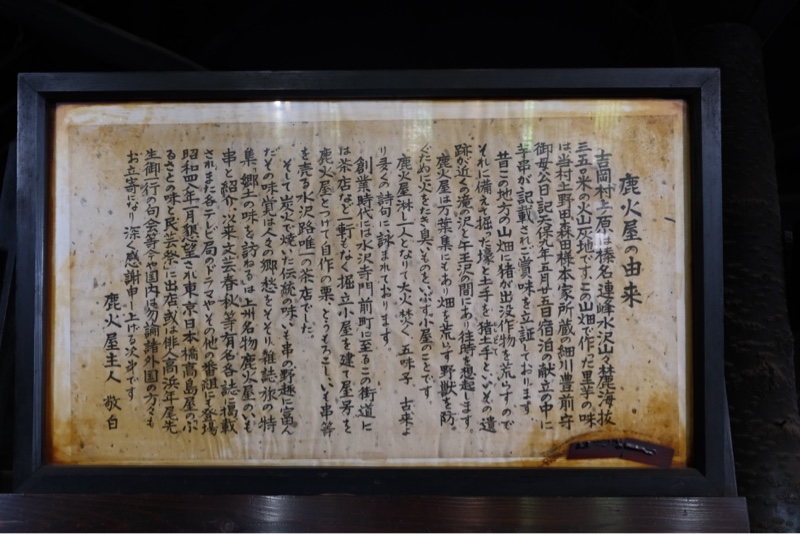 鹿火屋の由来
吉岡村上野原は榛名連峰水沢山の麓海抜
三五〇米の火山灰地です。この山畑で作った里芋の味
は当村上野田森田様本家所蔵の細川豊前守
御母公日記天保九年五月廿五日宿泊の献立の中に
芋串が記載され ご賞味を立証しております
昔この地方の山畑に猪が出没作物を荒らすので
それに備えて掘った壕と土手を猪土手といいその遺
跡が近くの滝の沢と午王沢の間にあり往時を想起します
鹿火屋は万葉集にもあり畑を荒らす野獣を防
ぐために火をたき臭いものをいぶす小屋のことです
鹿火屋淋し一人となりて大火焚く 五味子 古来よ
り多くの詩句に詠まれております
創業時代には水沢寺門前町に至るこの街道に
は茶店など一軒もなく掘立小屋を建て屋号を
鹿火屋とつけて自作の栗、とうもろこし、いも串等
を売る水沢路唯一の茶店でした。
そして炭火で焼いた伝統の味いも串の野趣に富ん
だその味覚は人々の郷愁をそそり、雑誌旅の特
集、郷土の味を訪ねるに上州名物鹿火屋のいも
串と紹介、以来文芸春秋等有名各誌に掲載
されまた各テレビ局のドラマやその他の番組に登場
昭和四八年一月懇望され東京日本橋高島屋のふ
るさとの味と民芸祭に出店或は俳人高浜年尾先
生御一行の句会等今や国内は勿論諸外国の方々も
お立寄になり深く感謝申し上げる次第です
鹿火屋主人 敬白